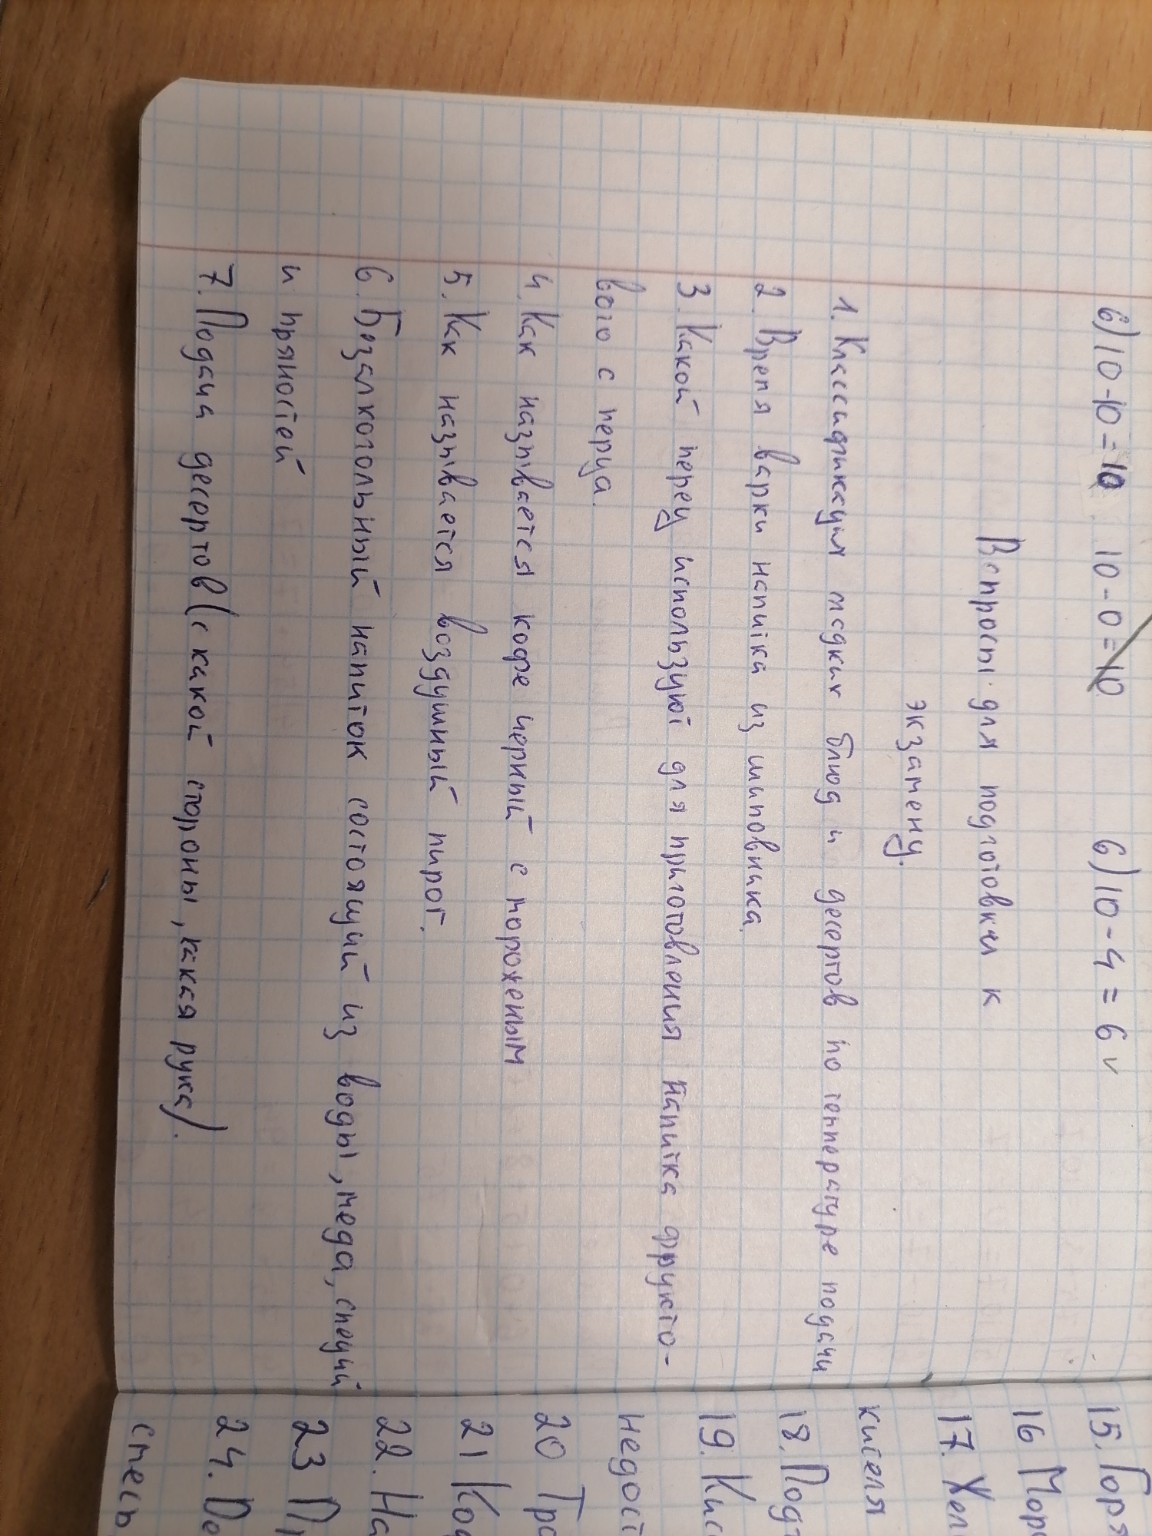 б) 10-10=10 10-0=10 б) 10-4=6
Впросы для подготовки к
экзамену.
1. Классификация сладких блюд и десертов по температуре подачи
2. Время варки напитка из шиповника.
3. Какой перец используют для приготовления напитка фрукто-
вого с перца.
4. Как называется кофе черный с мороженым
5. Как называется воздушный пирог.
6. Безалкогольный напиток состоящий из воды, меда, специй
и пряностей
7. Подача десертов (с какой стороны, какая рука).
15. Горя
16 Мор
17. Жел
киселя
18. Подг
19. Кис
недост
20 Тра
21 Ко
22. На
23 П
24. Де
смесь